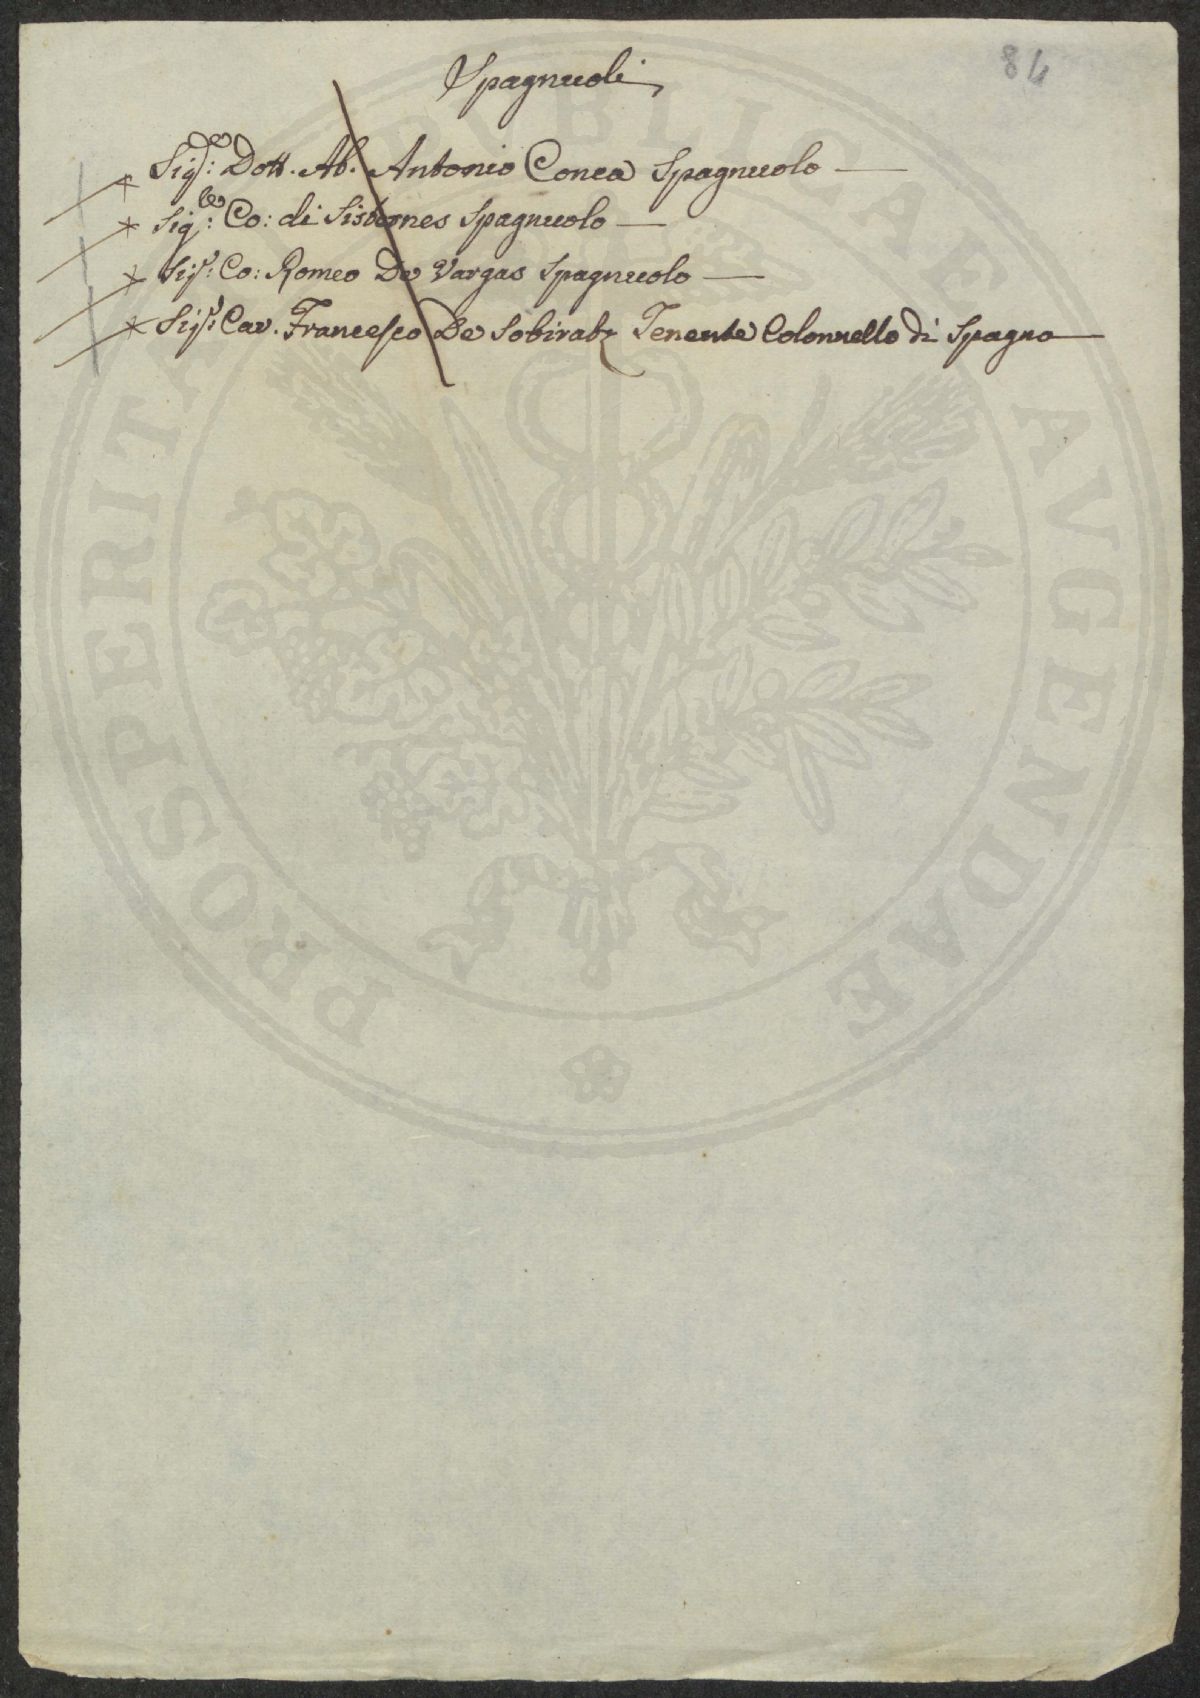 84
Spagnuoli
Sig.r: Dott. Ab. Antonio Conca Spagnuolo
Sig.r: Co: di Sistornes Spagnuolo
Sig.r: Co: Romeo De Vargas Spagnuolo
Sig.r: Cav. Francesco De Tenente Colonnello di Spagna
PROSPERITATI PUBLICAE AVGENDAE